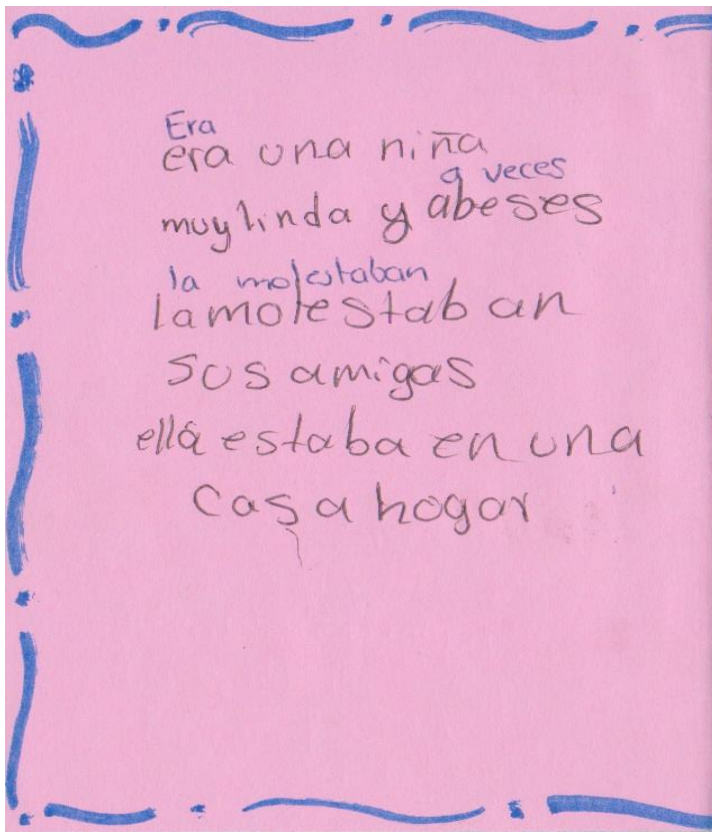 Era
era una niña
a veces
muy linda y abeses
la molestaban
lamolestaban
sus amigas
ella estaba en una
casa hogar